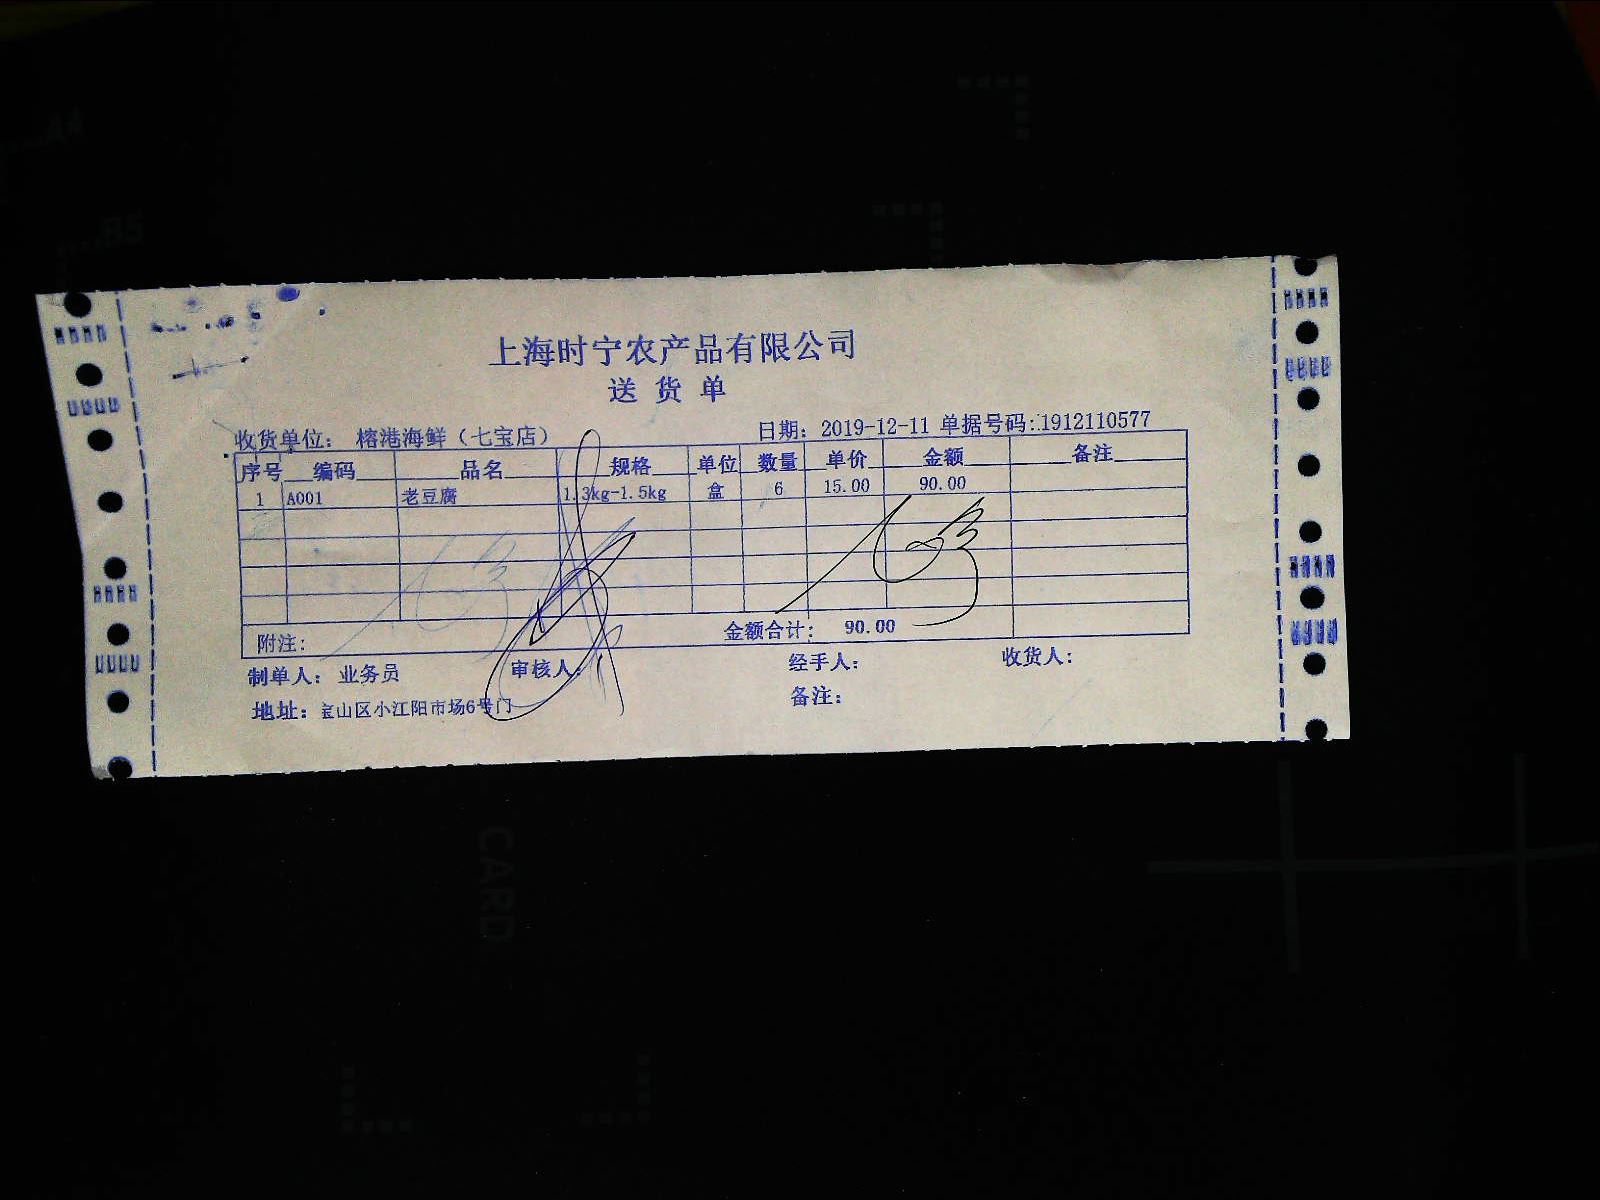 上海时宁农产品有限公司
送货单
收货单位： 榕港海鲜（七宝店） 日期： 2019-12-11 单据号码：1912110577
序号 编码 品名 规格 单位 数量 单价 金额 备注
1 A001 老豆腐 1.3kg-1.5kg 盒 6 15.00 90.00
附注： 金额合计： 90.00
制单人： 业务员 审核人： 经手人： 收货人：
地址： 宝山区小江阳市场6号门 备注：
A4
B5
CARD